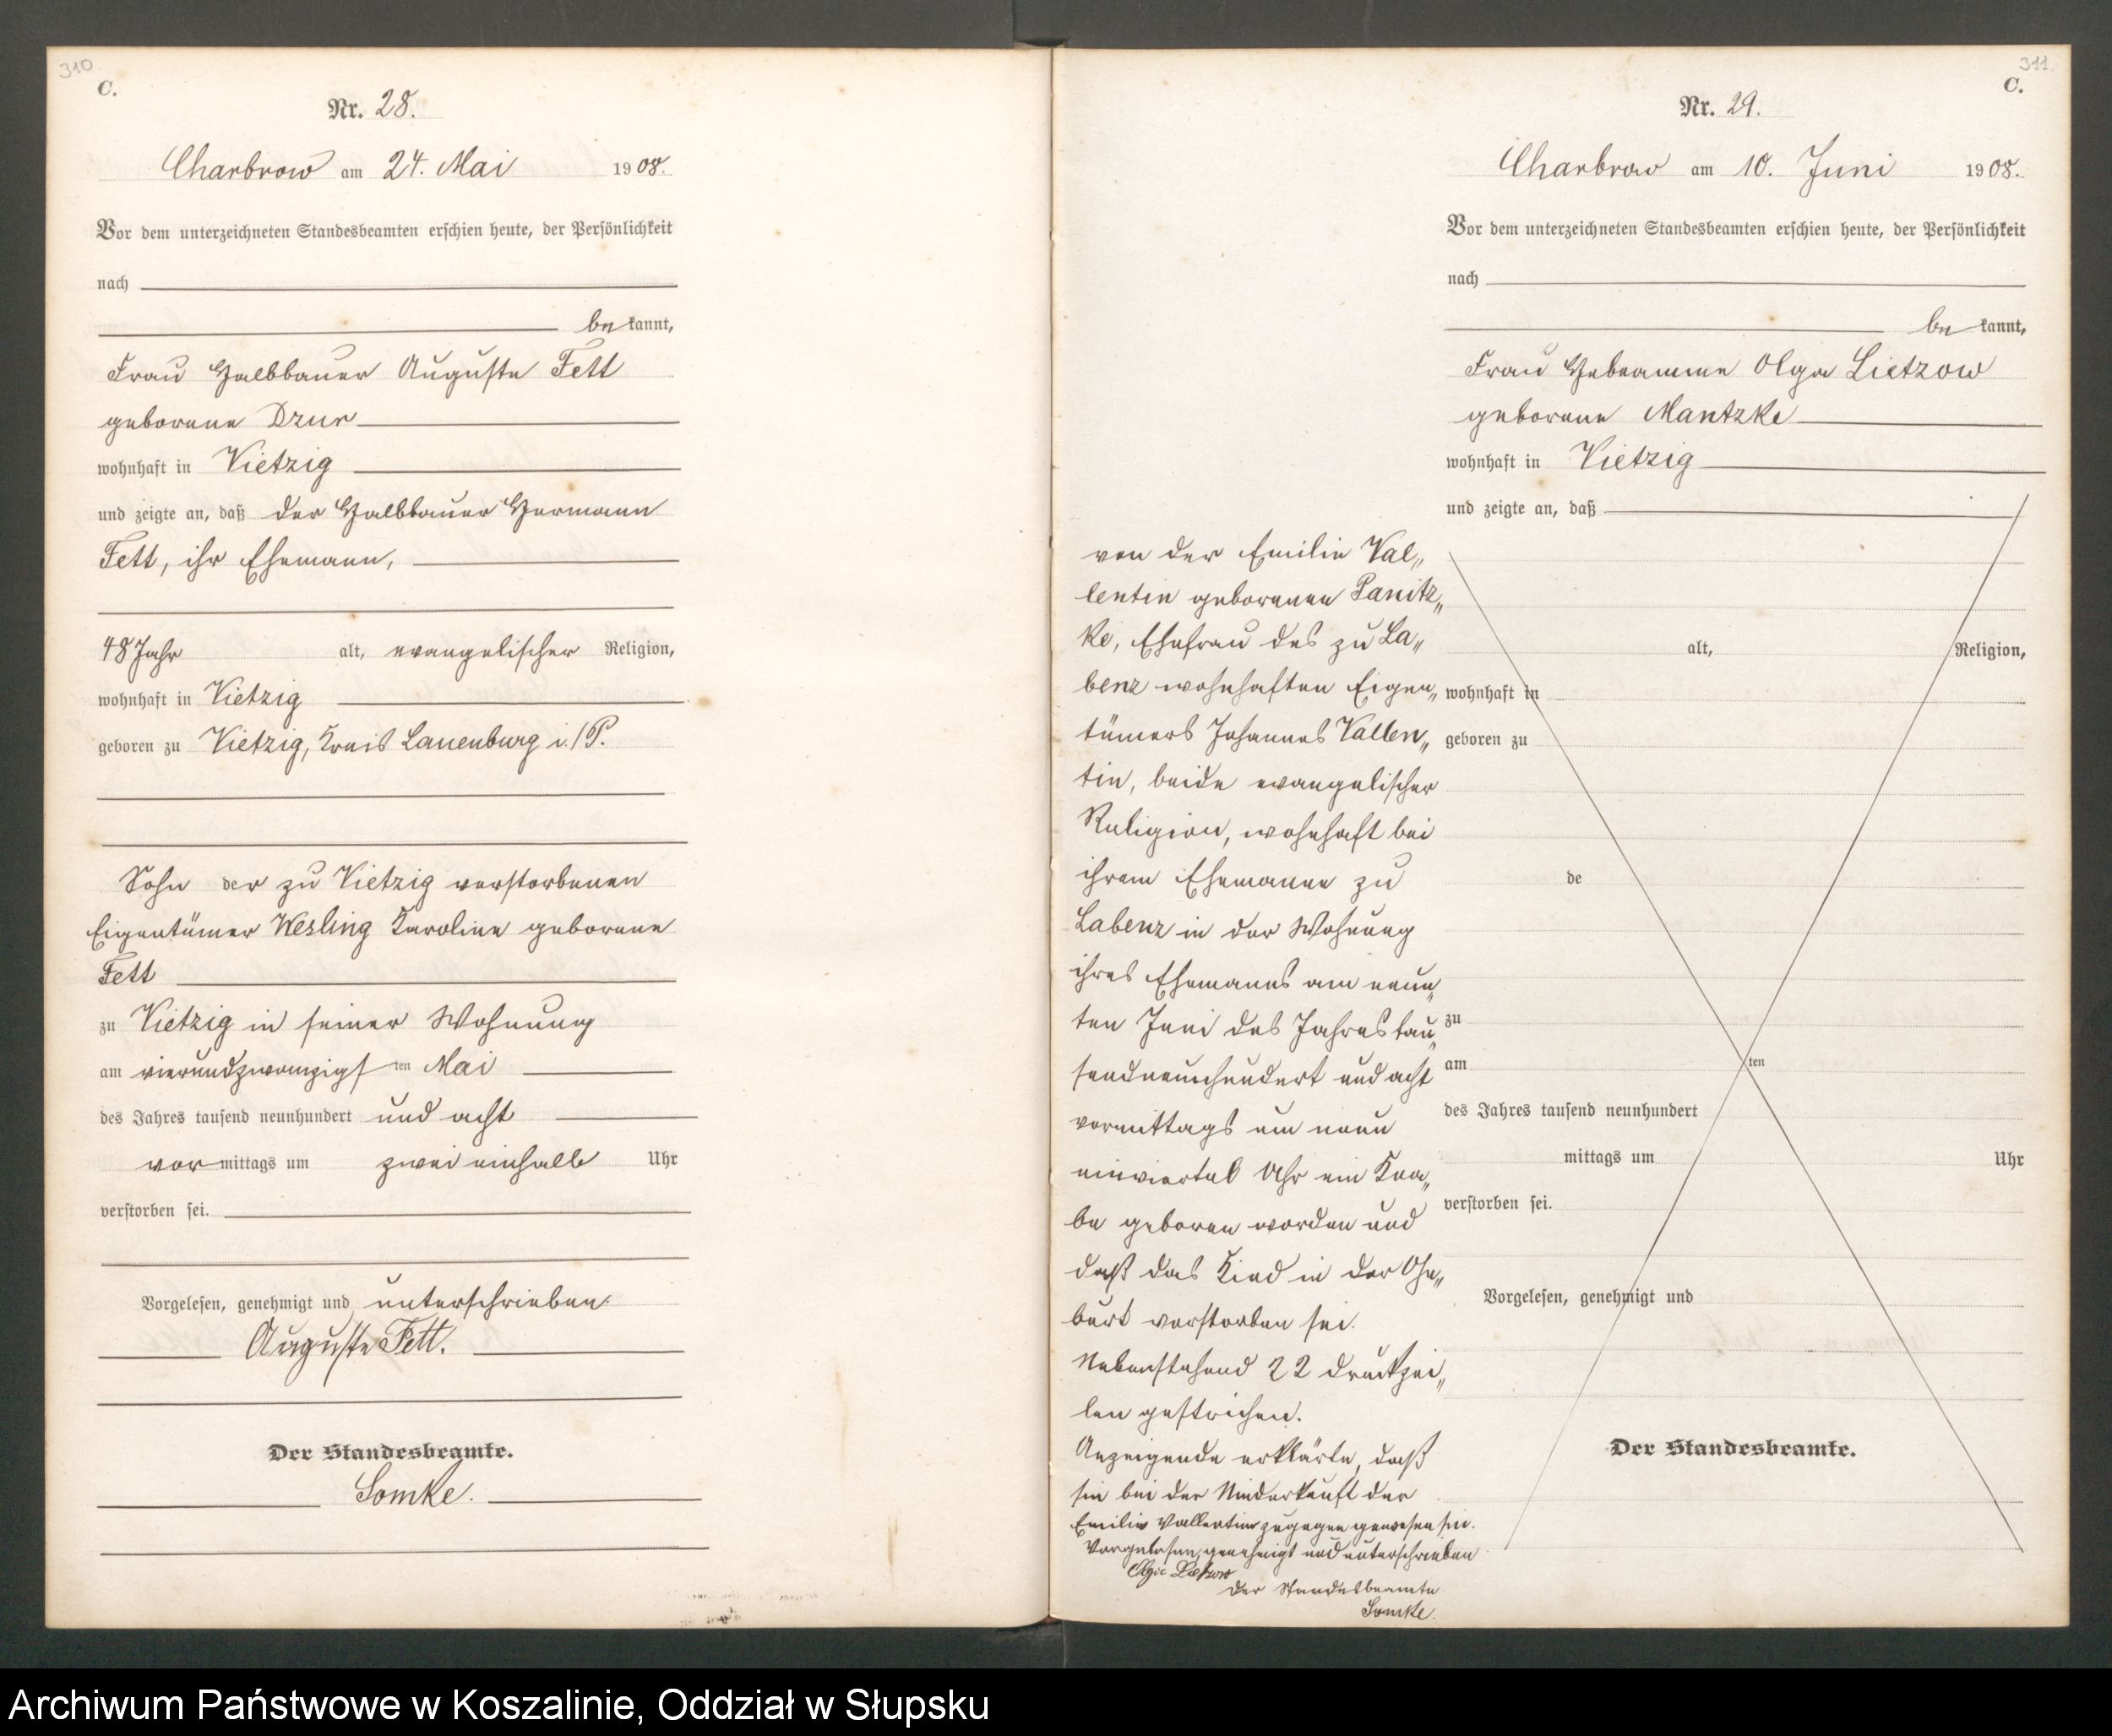 310
C.
Nr. 28.
Charbrow am 24. Mai 1908.
Vor dem unterzeichneten Standesbeamten erschien heute, der Persönlichkeit
nach
be kannt,
Frau Halbbauer Auguste Fett
geborene Dzur
wohnhaft in Vietzig
und zeigte an, daß der Halbbauer Hermann
Fett, ihr Ehemann,
48 Jahr alt, evangelischer Religion,
wohnhaft in Vietzig
geboren zu Vietzig, Kreis Lauenburg i./P.
Sohn der zu Vietzig verstorbenen
Eigentümer Wesling Karoline geborene
Fett
zu Vietzig in seiner Wohnung
am vierundzwanzigsten Mai
des Jahres tausend neunhundert und acht
vor mittags um zwei einhalb Uhr
verstorben sei.
Vorgelesen, genehmigt und unterschrieben.
Auguste Fett.
Der Standesbeamte.
Somke.
311.
C.
Nr. 29.
Charbrow am 10. Juni 1908.
Vor dem unterzeichneten Standesbeamten erschien heute, der Persönlichkeit
nach
be kannt,
Frau Hebeamme Olga Lietzow
geborene Mantzke
wohnhaft in Vietzig
und zeigte an, daß
von der Emilie Val„
lentin geborenen Panitz„
ke, Ehefrau des zu La„
benz wohnhaften Eigen„
tümers Johannes Vallen„
tin, beide evangelischer
Religion, wohnhaft bei
ihrem Ehemanne zu
Labenz in der Wohnung
ihres Ehemanns am neun„
ten Juni des Jahres tau„
sendneunhundert und acht
vormittags um neun
einviertel Uhr ein Kna„
be geboren worden und
daß das Kind in der Ge„
burt verstorben sei.
Nebenstehend 22 Druckzei„
len gestrichen.
Anzeigende erklärte, daß
sie bei der Niederkunft der
Emilie Vallentin zugegen gewesen sei.
Vorgelesen, genehmigt und unterschrieben
Olga Lietzow
Der Standesbeamte
Somke.
alt, Religion,
wohnhaft in
geboren zu
de
zu
am ten
des Jahres tausend neunhundert
mittags um Uhr
verstorben sei.
Vorgelesen, genehmigt und
Der Standesbeamte.
Archiwum Państwowe w Koszalinie, Oddział w Słupsku